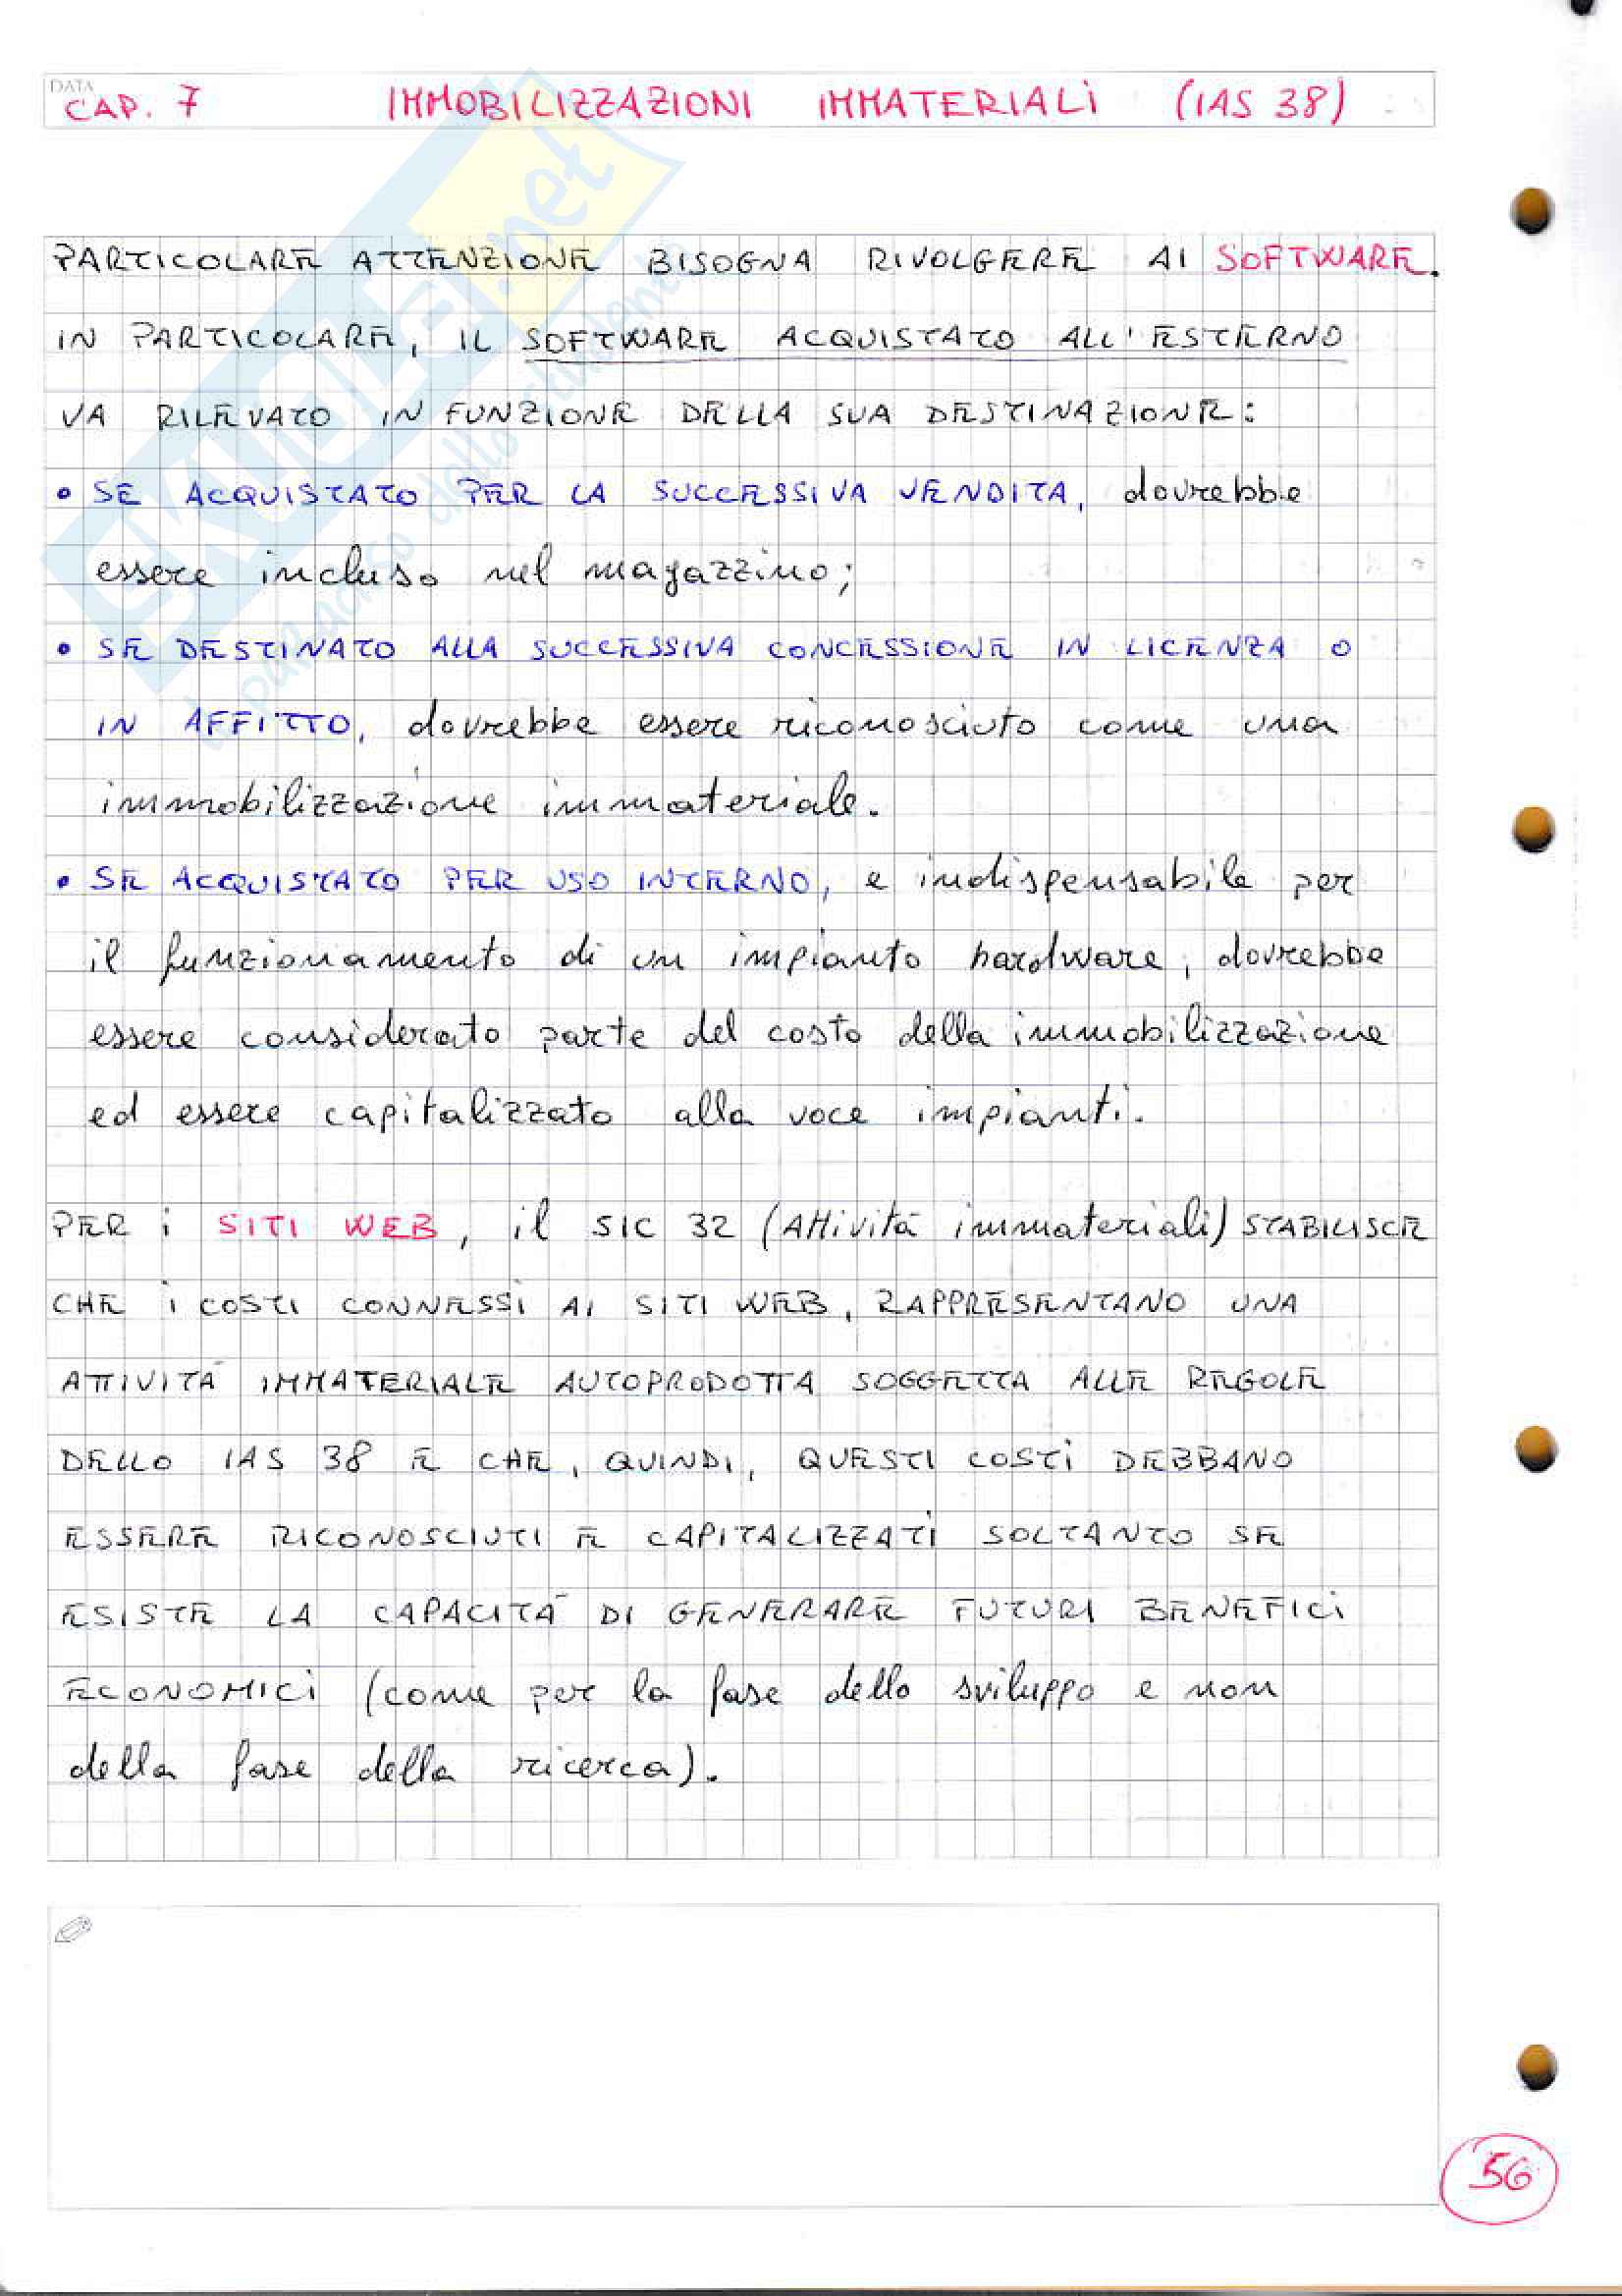 DATA
CAP. 7 IMMOBILIZZAZIONI IMMATERIALI (IAS 38)
SKUOLA.net
PARTICOLARE ATTENZIONE BISOGNA RIVOLGERE AI SOFTWARE.
IN PARTICOLARE, IL SOFTWARE ACQUISTATO ALL'ESTERNO
VA RILEVATO IN FUNZIONE DELLA SUA DESTINAZIONE:
• SE ACQUISTATO PER LA SUCCESSIVA VENDITA, dovrebbe
essere incluso nel magazzino;
• SE DESTINATO ALLA SUCCESSIVA CONCESSIONE IN LICENZA O
IN AFFITTO, dovrebbe essere riconosciuto come una
immobilizzazione immateriale.
• SE ACQUISTATO PER USO INTERNO, e indispensabile per
il funzionamento di un impianto hardware, dovrebbe
essere considerato parte del costo della immobilizzazione
ed essere capitalizzato alla voce impianti.
PER i SITI WEB, il SIC 32 (Attività immateriali) STABILISCE
CHE i COSTI CONNESSI AI SITI WEB, RAPPRESENTANO UNA
ATTIVITÀ IMMATERIALE AUTOPRODOTTA SOGGETTA ALLE REGOLE
DELLO IAS 38 E CHE, QUINDI, QUESTI COSTI DEBBANO
ESSERE RICONOSCIUTI E CAPITALIZZATI SOLTANTO SE
ESISTE LA CAPACITÀ DI GENERARE FUTURI BENEFICI
ECONOMICI (come per la fase dello sviluppo e non
della fase della ricerca).
56